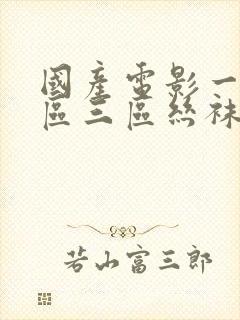 國產電影一
區三區絲襪
若山富三郎